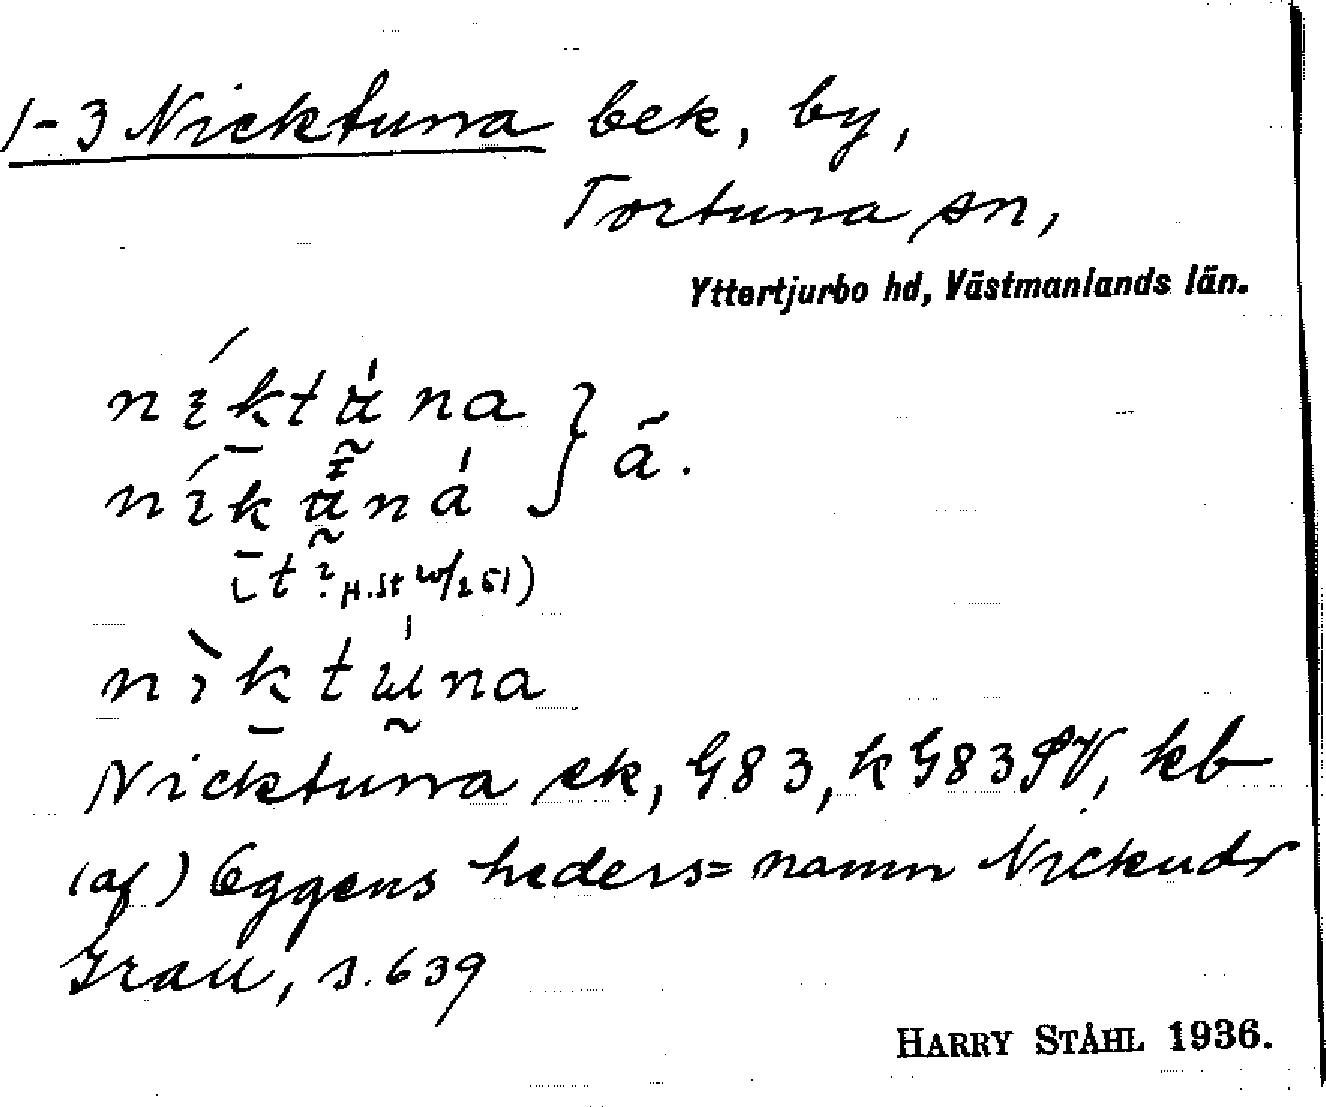 1-3 Nicktuna bek, by,
Tortuna sn,
Yttertjurbo hd, Västmanlands län.
níktu̍na } ã.
níkuna̍
(t? H.St 10/2 51)
nìktu̍na
Nicktuna ek, G83, k G83 PV, kb
(af) Eggens heders=namn Nickuds
Grau, s. 639
HARRY STÅHL 1936.